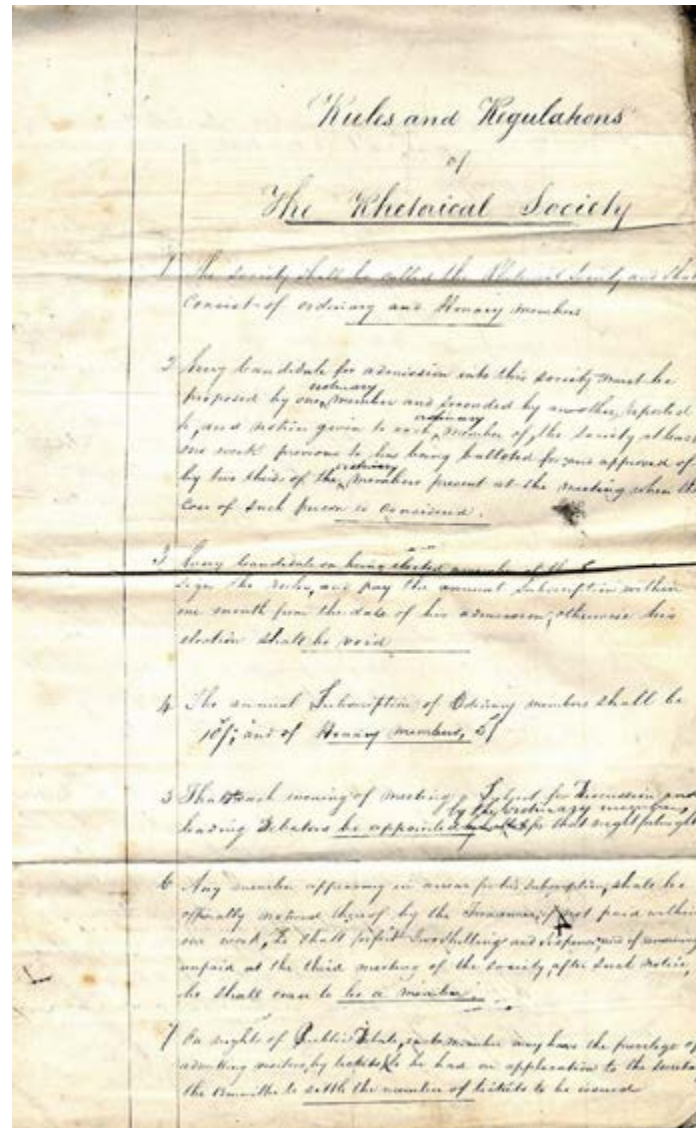 Rules and Regulations
of
The Rhetorical Society
1 The Society shall be called the Rhetorical Society and shall
Consist of ordinary and Honary members
2 Every Candidate for admission into this Society must be
ordinary
proposed by one member and seconded by another, reported
ordinary
and notice given to each member of the Society at least
one week previous to his being balloted for and approved of
ordinary
by two thirds of the members present at the meeting when the
Case of such person is considered.
3 Every Candidate on being elected member of the
Sign the rules, and pay the annual Subscription within
one month from the date of his admission, otherwise his
election shall be void
4 The annual Subscription of Ordinary members shall be
10/; and of Honary members, 5/
5 That each evening of meeting a Subject for Discussion and
by the ordinary members
leading Debators be appointed for that night
6 Any member appearing in arrear for his Subscription, shall be
officially noticed thereof by the Treasurer, if not paid within
one week, he shall forfeit Two shillings and sixpence, and if remaining
unpaid at the third meeting of the society, after such notice,
he shall cease to be a member.
7 On nights of Public Debate, each member may have the privilege of
admitting visitors, by tickets to be had on application to the Secreta
the Committee to settle the number of tickets to be issued